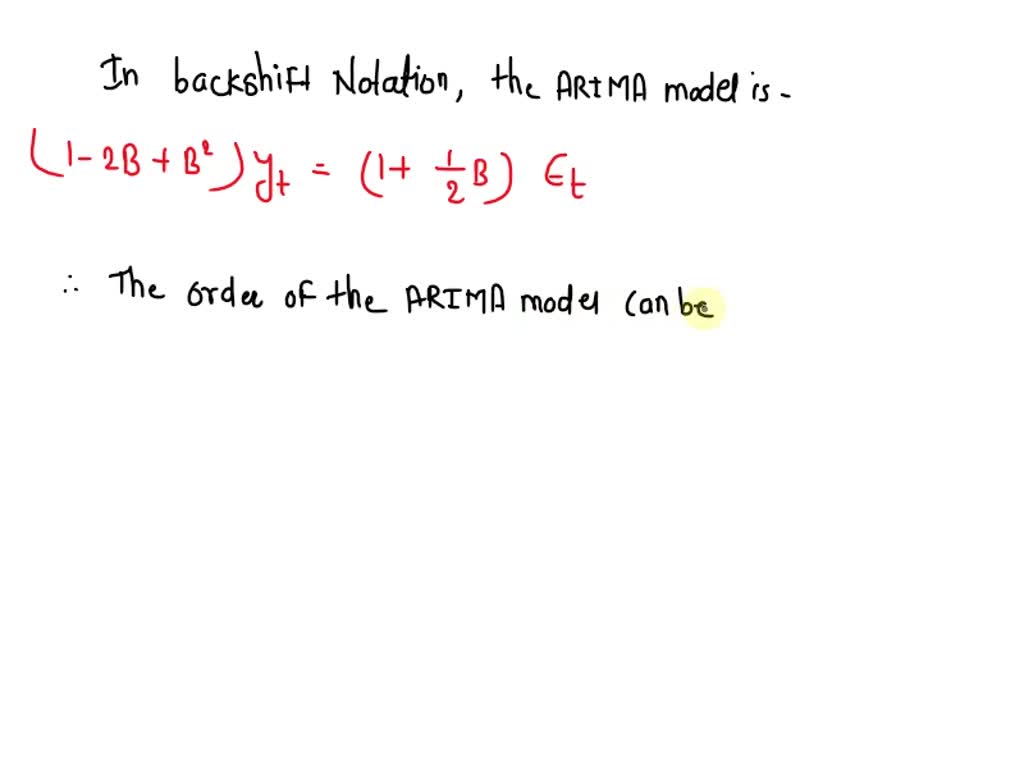 In backshift Notation, the ARIMA model is -
(1 - 2B + B²) yt = (1 + 1/2 B) Єt
∴ The order of the ARIMA model can be